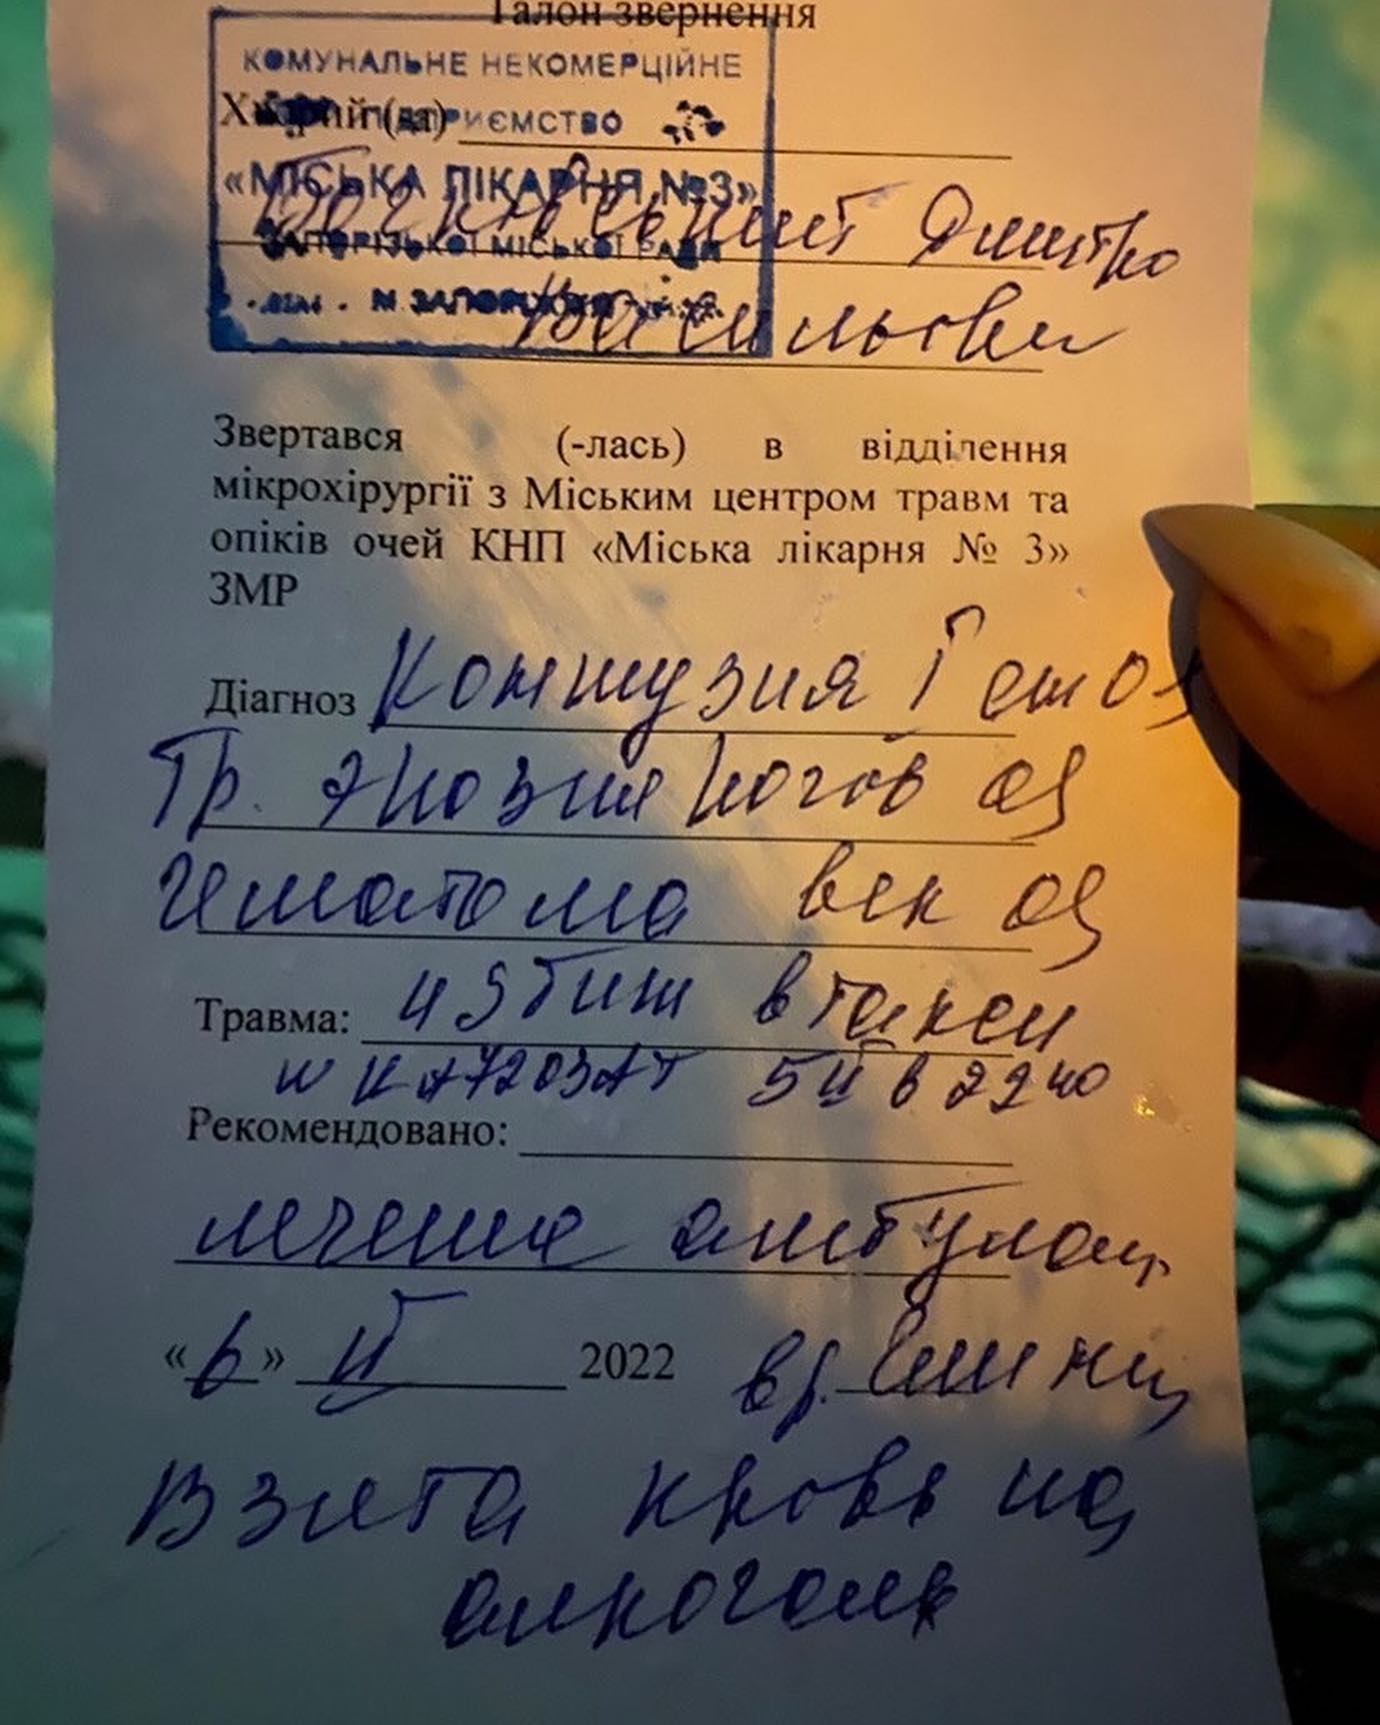 Талон звернення
КОМУНАЛЬНЕ НЕКОМЕРЦІЙНЕ
Хворий (а)
ПІДПРИЄМСТВО
«МІСЬКА ЛІКАРНЯ №3»
Дмитро
ЗАПОРІЗЬКОЇ МІСЬКОЇ РАДИ
М ЗАПОРІЖЖЯ
Васильови
Звертався (-лась) в відділення
мікрохірургії з Міським центром травм та
опіків очей КНП «Міська лікарня № 3»
ЗМР
Діагноз Контузия
Тр. эрозия OS
гематома век OS
Травма: избит в такси
КА7203АТ 5 II в 22 40
Рекомендовано:
лечение амбулат
«6» II 2022 вр.
Взята кровь на
алкоголь